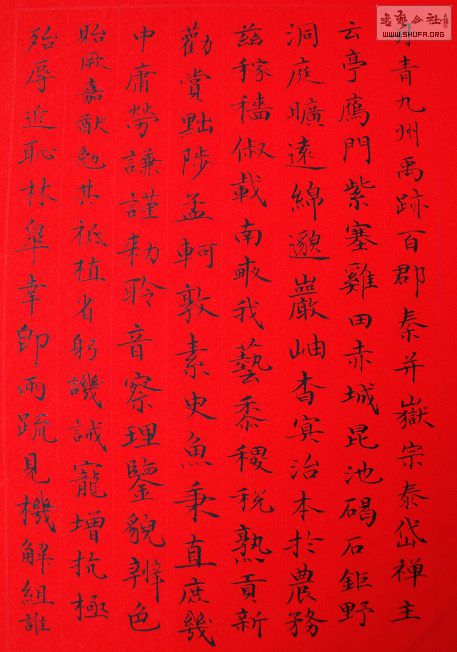 丹青九州禹跡百郡秦并嶽宗泰岱禪主
云亭鴈門紫塞雞田赤城昆池碣石鉅野
洞庭曠遠綿邈巖岫杳冥治本於農務
茲稼穡俶載南畝我藝黍稷稅熟貢新
勸賞黜陟孟軻敦素史魚秉直庶幾
中庸勞謙謹勑聆音察理鑒貌辨色
貽厥嘉猷勉其祗植省躬譏誡寵增抗極
殆辱近恥林皋幸即兩疏見機解組誰
書藝公社
WWW.SHUFA.ORG